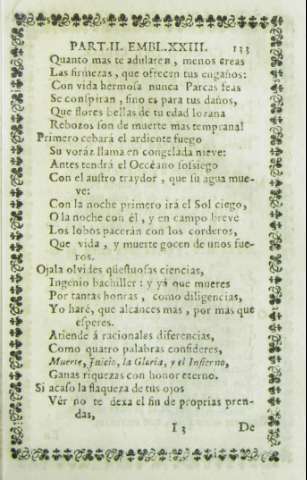 PART.II. EMBL.XXIII. 133
Quanto mas te adularen, menos creas
Las firmezas, que ofrecen tus engaños:
Con vida hermosa nunca Parcas feas
Se conspiran, sino es para tus daños,
Que flores bellas de tu edad lozana
Rebozos son de muerte mas temprana!
Primero cebará el ardiente fuego
Su voráz llama en congelada nieve:
Antes tendrá el Occéano sosiego
Con el austro traydor, que su agua mue-
ve:
Con la noche primero irá el Sol ciego,
O la noche con él, y en campo breve
Los lobos pacerán con los corderos,
Que vida, y muerte gocen de unos fue-
ros.
Ojala olvides qüestuosas ciencias,
Ingenio bachiller: y yá que mueres
Por tantas honras, como diligencias,
Yo haré, que alcances mas, por mas que
esperes.
Atiende á racionales diferencias,
Como quatro palabras consideres,
Muerte, Juicio, la Gloria, y el Infierno,
Ganas riquezas con honor eterno.
Si acaso la flaqueza de tus ojos
Vér no te dexa el fin de proprias pren-
das,
I 3 De